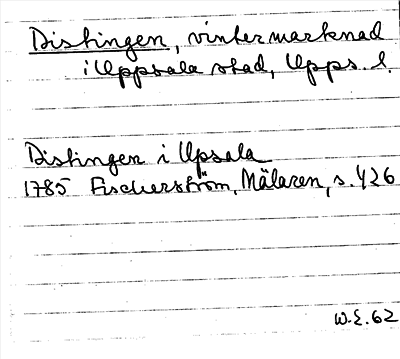 Distingen, vintermarknad
i Uppsala stad, Upps. l.
Distingen i Upsala
1785 Fischerström, Mälaren, s. 426
W.E. 62